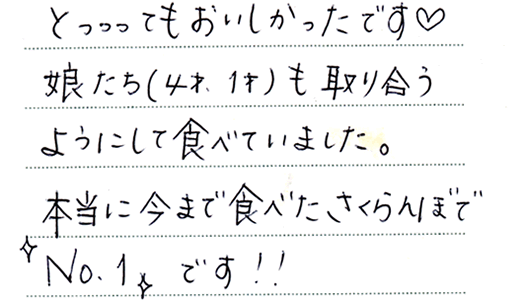 とっっってもおいしかったです♡
娘たち(4才、1才)も取り合う
ようにして食べていました。
本当に今まで食べたさくらんぼで
No.1 です!!